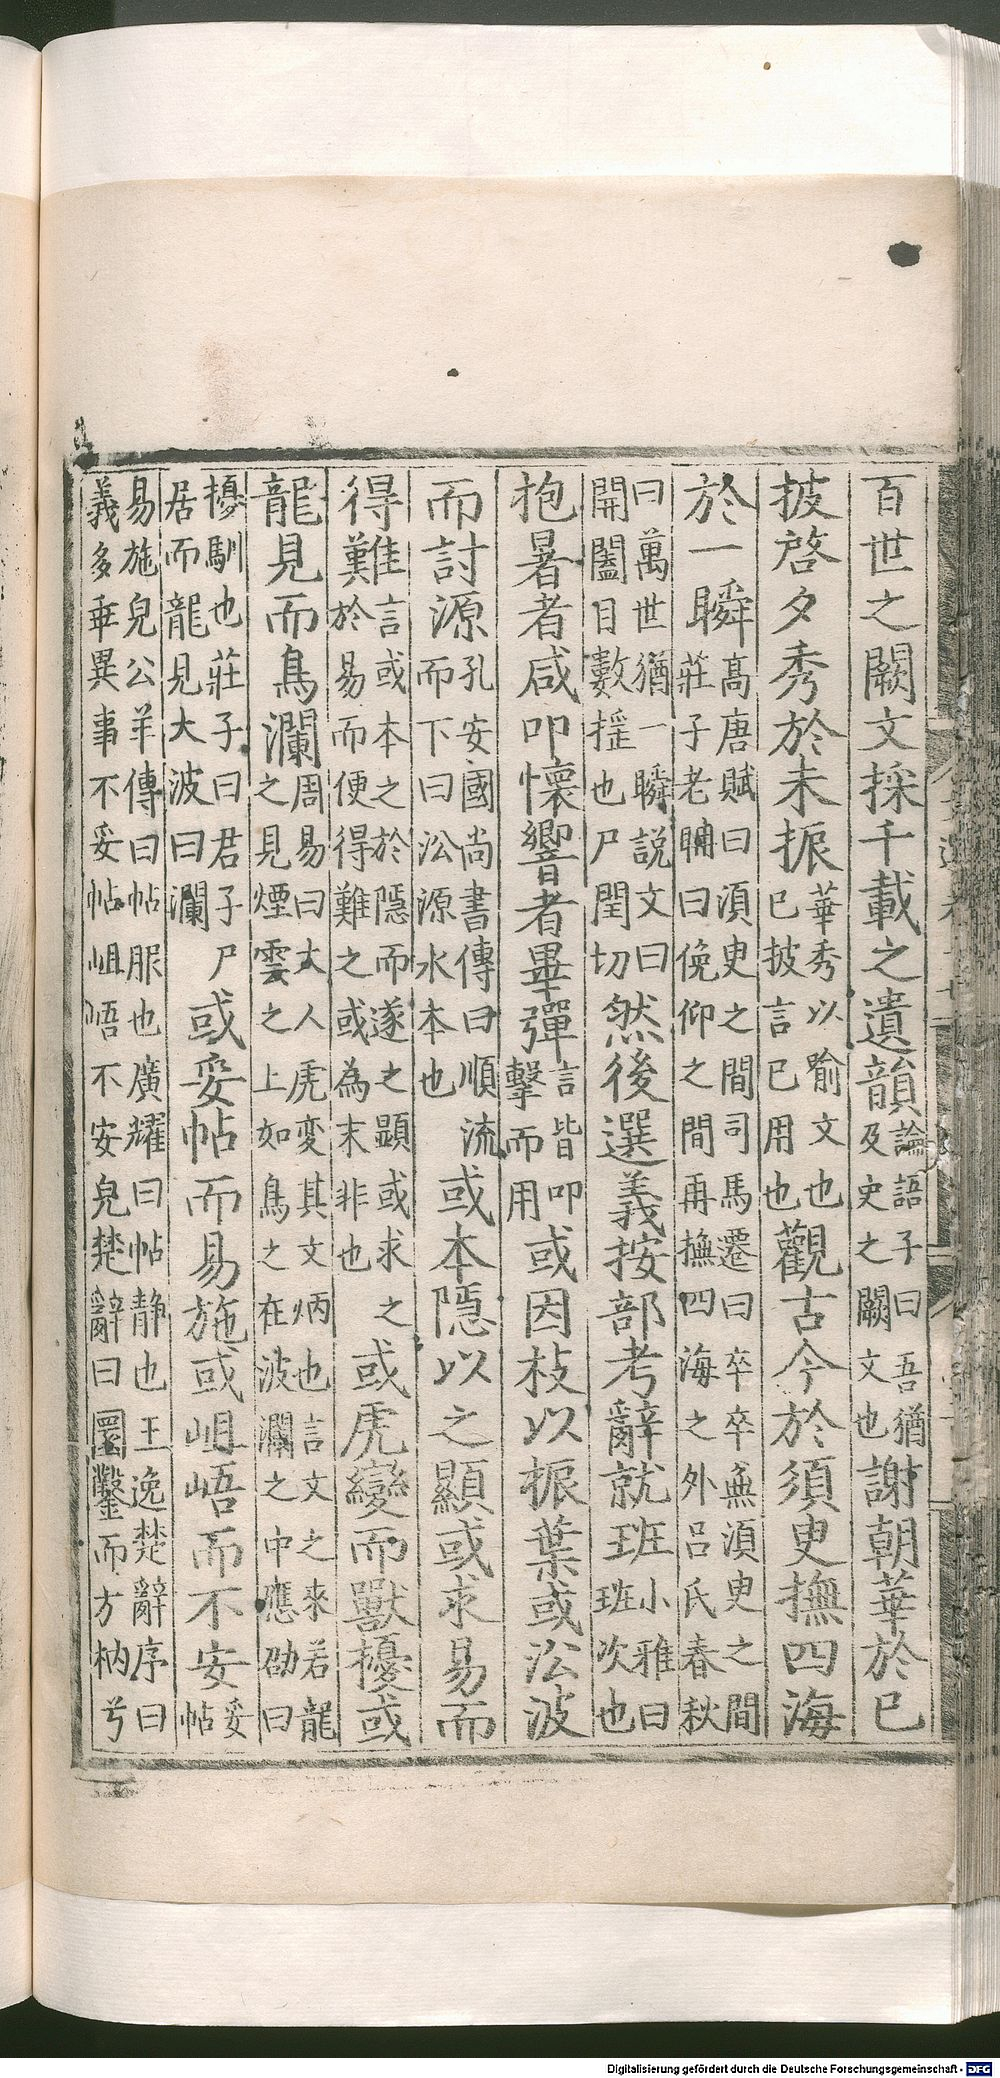 百世之闕文採千載之遺韻論語子曰吾猶及史之闕文也謝朝華於已
披啓夕秀於未振華秀以喻文也已披言已用也觀古今於須臾撫四海
於一瞬高唐賦曰須臾之間司馬遷曰卒卒無須臾之間莊子老聃曰俛仰之間再撫四海之外呂氏春秋
曰萬世猶一瞬説文曰開闔目數揺也尸閏切然後選義按部考辭就班小雅曰班次也
抱暑者咸叩懷響者畢彈言皆叩擊而用或因枝以振葉或沿波
而討源孔安國尚書傳曰順流而下曰沿源水本也或本隱以之顯或求易而
得難言或本之於隱而遂之顯或求之於易而便得難之或為末非也或虎變而獸擾或
龍見而鳥瀾周易曰大人虎変其文炳也言文之來若龍之見煙雲之上如鳥之在波瀾之中應劭曰
擾馴也莊子曰君子尸居而龍見大波曰瀾或妥帖而易施或岨峿而不安妥帖
易施皃公羊傳曰帖服也廣耀曰帖静也王逸楚辭序曰義多乖異事不妥帖岨峿不安皃楚辭曰圜鑿而方枘兮
Digitalisierung gefördert durch die Deutsche Forschungsgemeinschaft - DFG